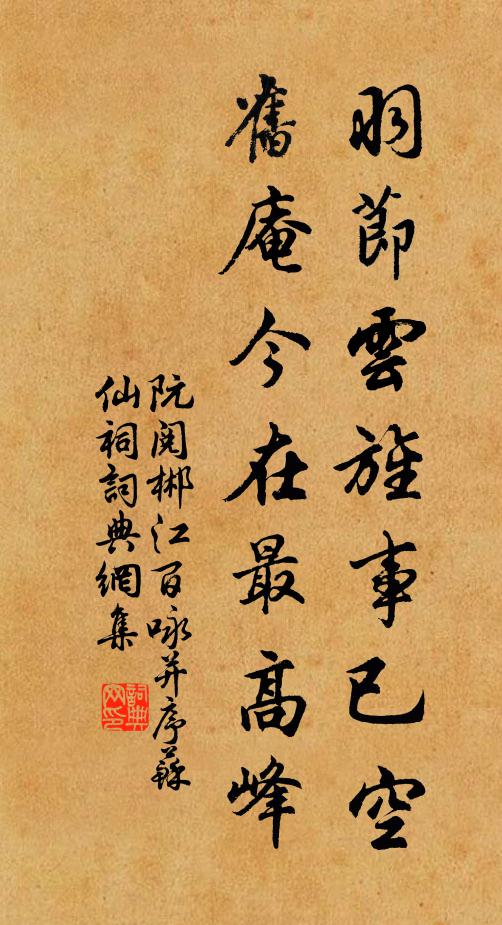 羽節雲旌事已空
舊庵今在最高峰
阮閱郴江百咏并序蘇
仙祠詞典網集
詞典
网印